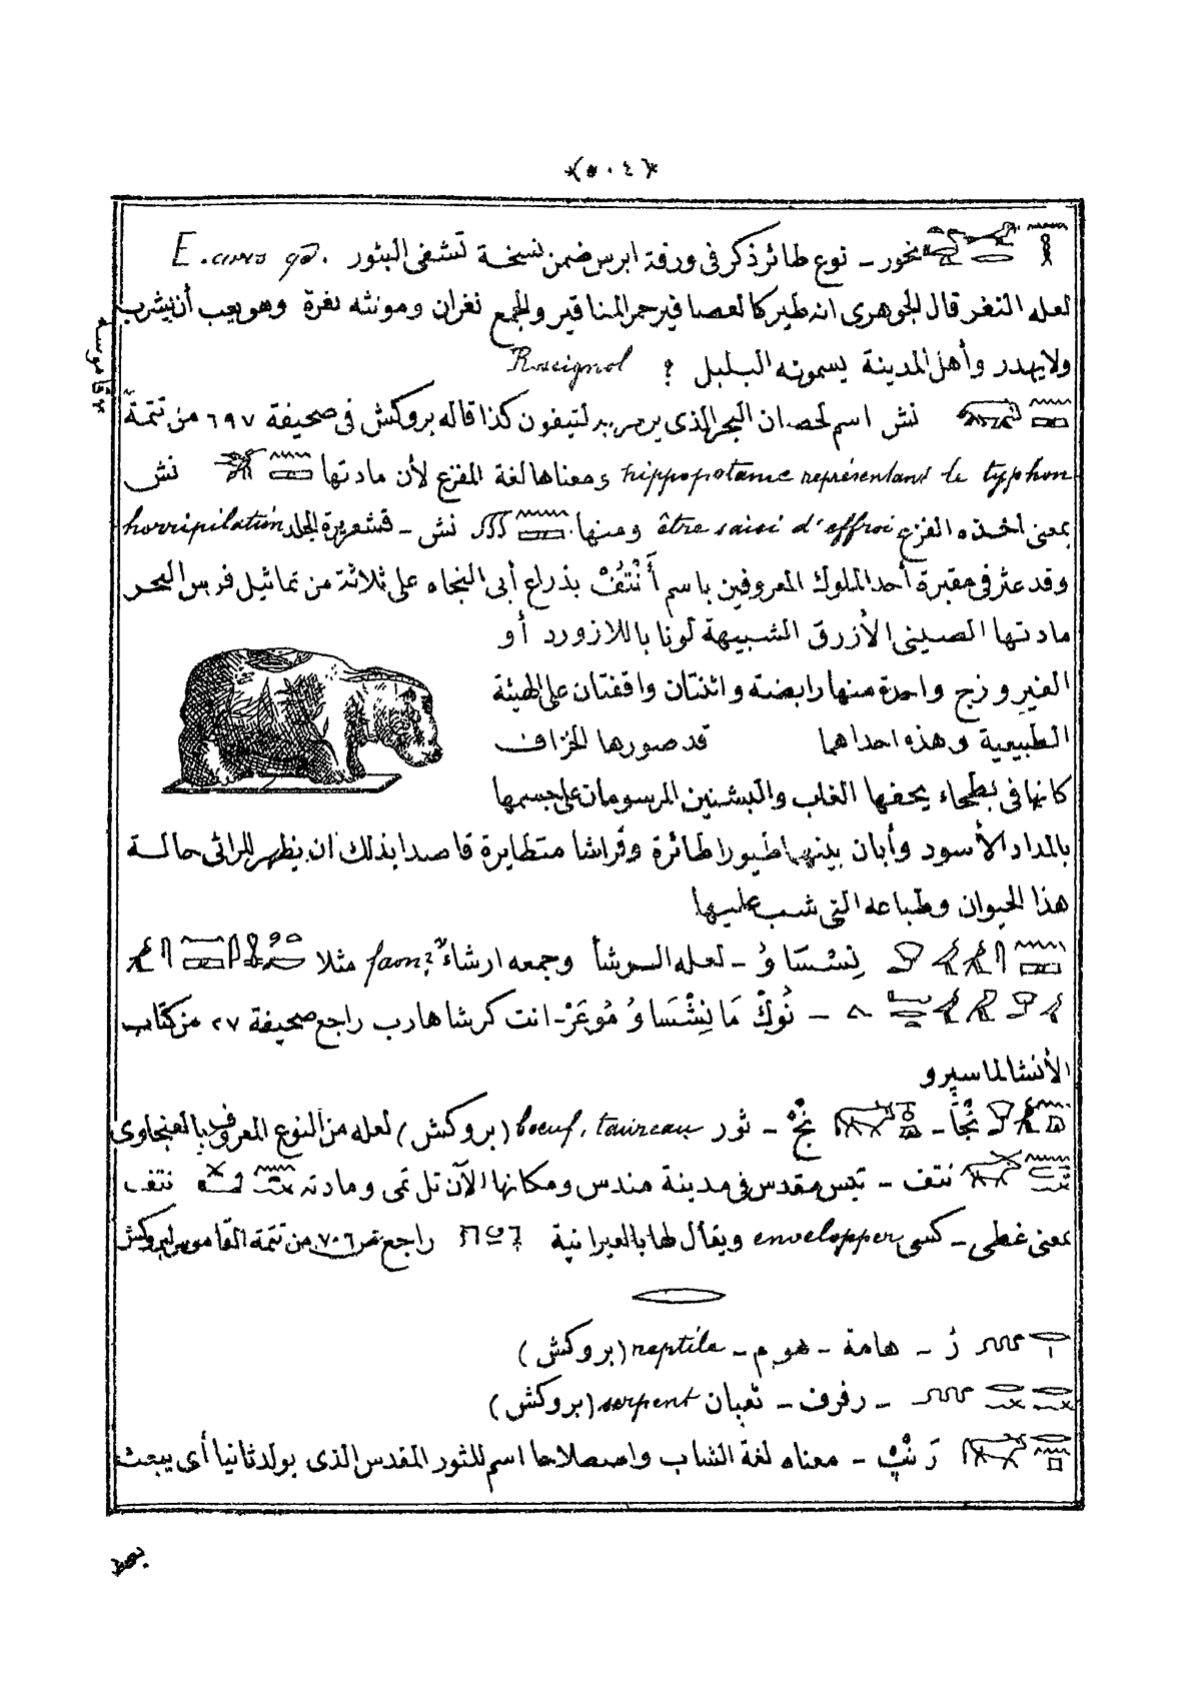 ﴿٥٠٤﴾
نحور – نوع طائر ذكر فى ورقة ابرس ضمن نسخة تشفى البثور
لعله النغر قال الجوهرى انه طير كالعصافير حمر المناقير والجمع نغران ومونثه نغرة وهو يعب أن يشرب
ولا يهدر وأهل المدينة يسمونه البلبل ؟ Rossignol
نش اسم لحصان البحر الذى لتيفون كذا قاله بروكش فى صحيفة ٦٩٧ من تتمة
hippopotame représentant le typhon ومعناها لغة المفزع لأن مادتها نش
بمعنى أخذه الفزع être saisi d'effroi ومنها نش – قشعريرة الجلد horripilation
وقد عثر فى مقبرة أحد الملوك المعروفين باسم أَنْتُفْ بذراع أبى النجاه على ثلاثة من تماثيل فرس البحر
مادتها الصينى الأزرق الشبيهة لونا باللازورد أو
الفيروزج واحدة منها رابضة واثنتان واقفتان على الهيئة
الطبيعية وهذه احداهما قد صورها الخزاف
كانها فى بطحاء يحفها الغاب والبشنين المرسومان على جسمها
بالمداد الأسود وأبان بينها طيورا طائرة وفراشا متطايرة قاصدا بذلك ان يظهر للرائى حالة
هذا الحيوان وطباعه التى شب عليها
نِسْسَاوُ – لعله الرشأ وجمعه ارشاء faon? مثلا
– نُوكْ مَا نِشْسَاوُ مُوعَرْ – انت كرشا هارب راجع صحيفة ٢٧ من كتاب
الأنشا لماسبرو
نْجَأ – نْجْ – ثور boeuf, taureau (بروكش) لعله من النوع المعروف
نتف – تيس مقدس فى مدينة مندس ومكانها الآن تل تمى ومادته نتف
بمعنى غطى – كسى envelopper ويقال لها بالعبرانية راجع ص ٧٠٦ من تتمة القاموس لبروكش
رُ – هامة – هوم – reptile (بروكش)
– رفرف – ثعبان serpent (بروكش)
رَنْپْ – معناه لغة الشاب واصطلاحا اسم للثور المقدس الذى يولد ثانيا أى يبعث